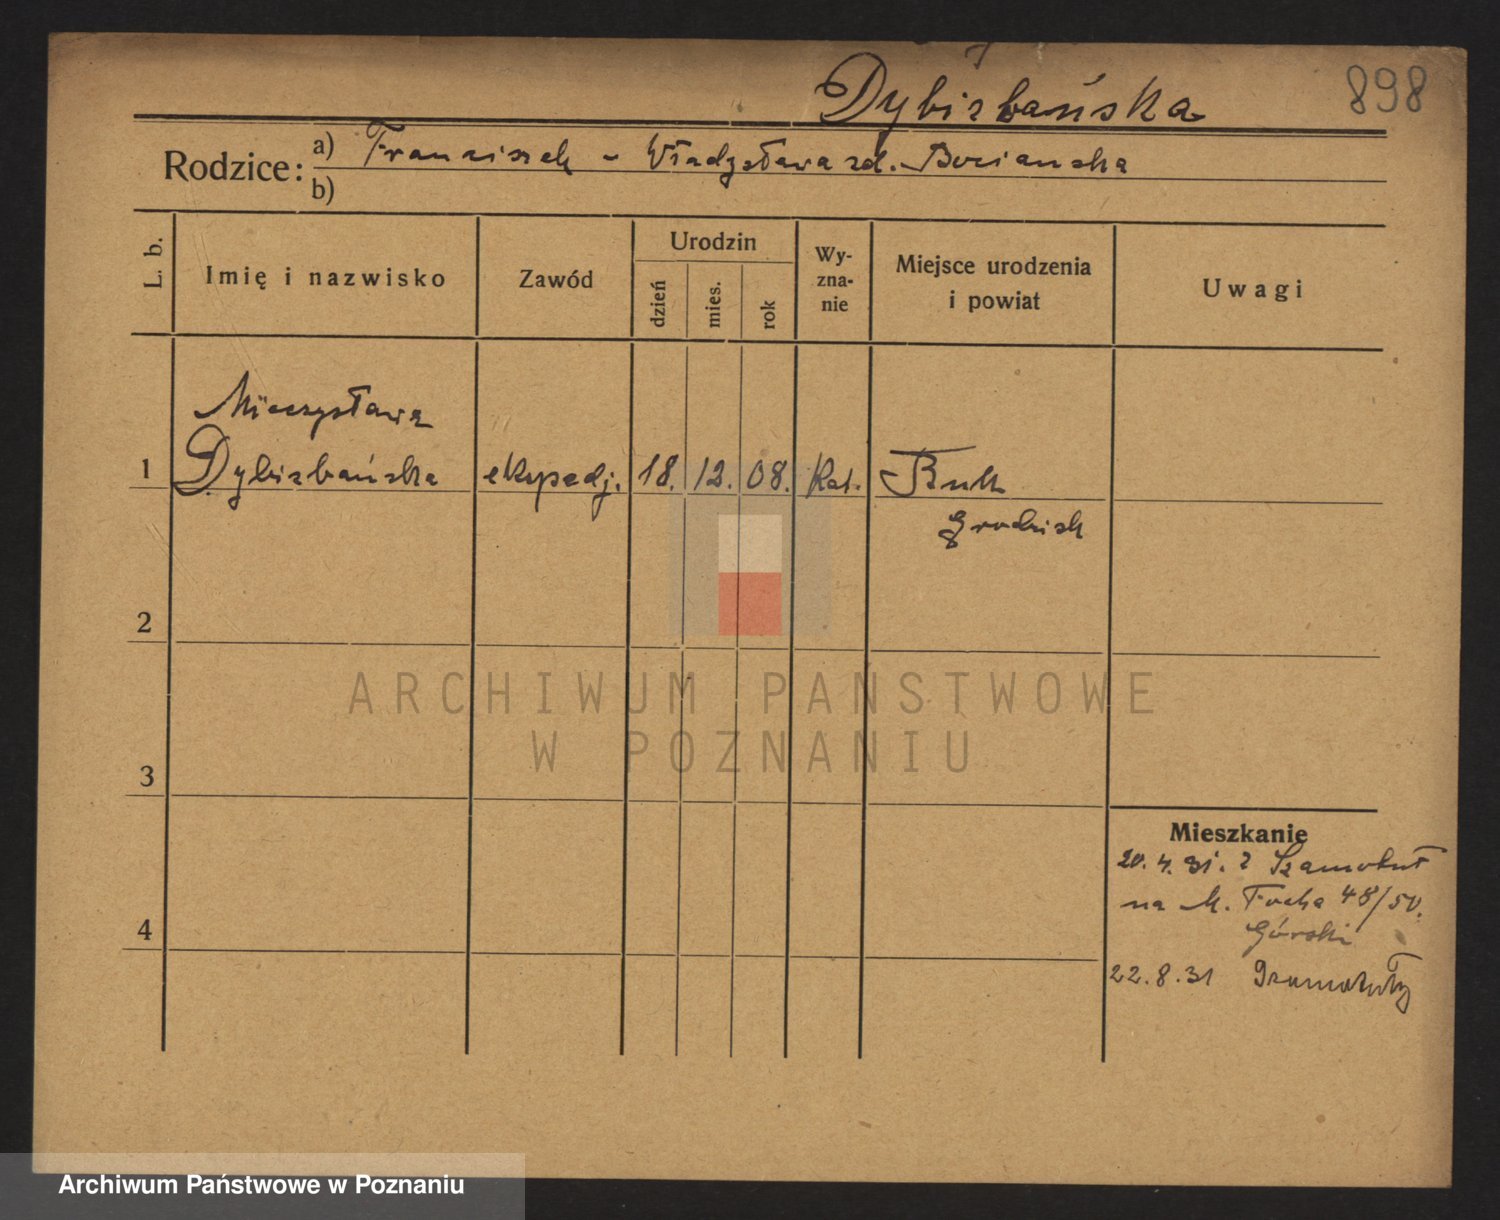 898
Dybizbańska
Rodzice: a) Franciszek - Władysława zd. Bociańska
b)
L. b.
Imię i nazwisko
Zawód
Urodzin
dzień
mies.
rok
Wy-
zna-
nie
Miejsce urodzenia
i powiat
Uwagi
Mieczysława
1 Dybizbańska ekspedj. 18. 12. 08. Kat. Buk
Grodzisk
2
3
4
Mieszkanie
20.4.31. z Szamotuł
na M. Focha 48/50.
Górski
22.8.31 Szamotuły
ARCHIWUM PAŃSTWOWE
W POZNANIU
Archiwum Państwowe w Poznaniu